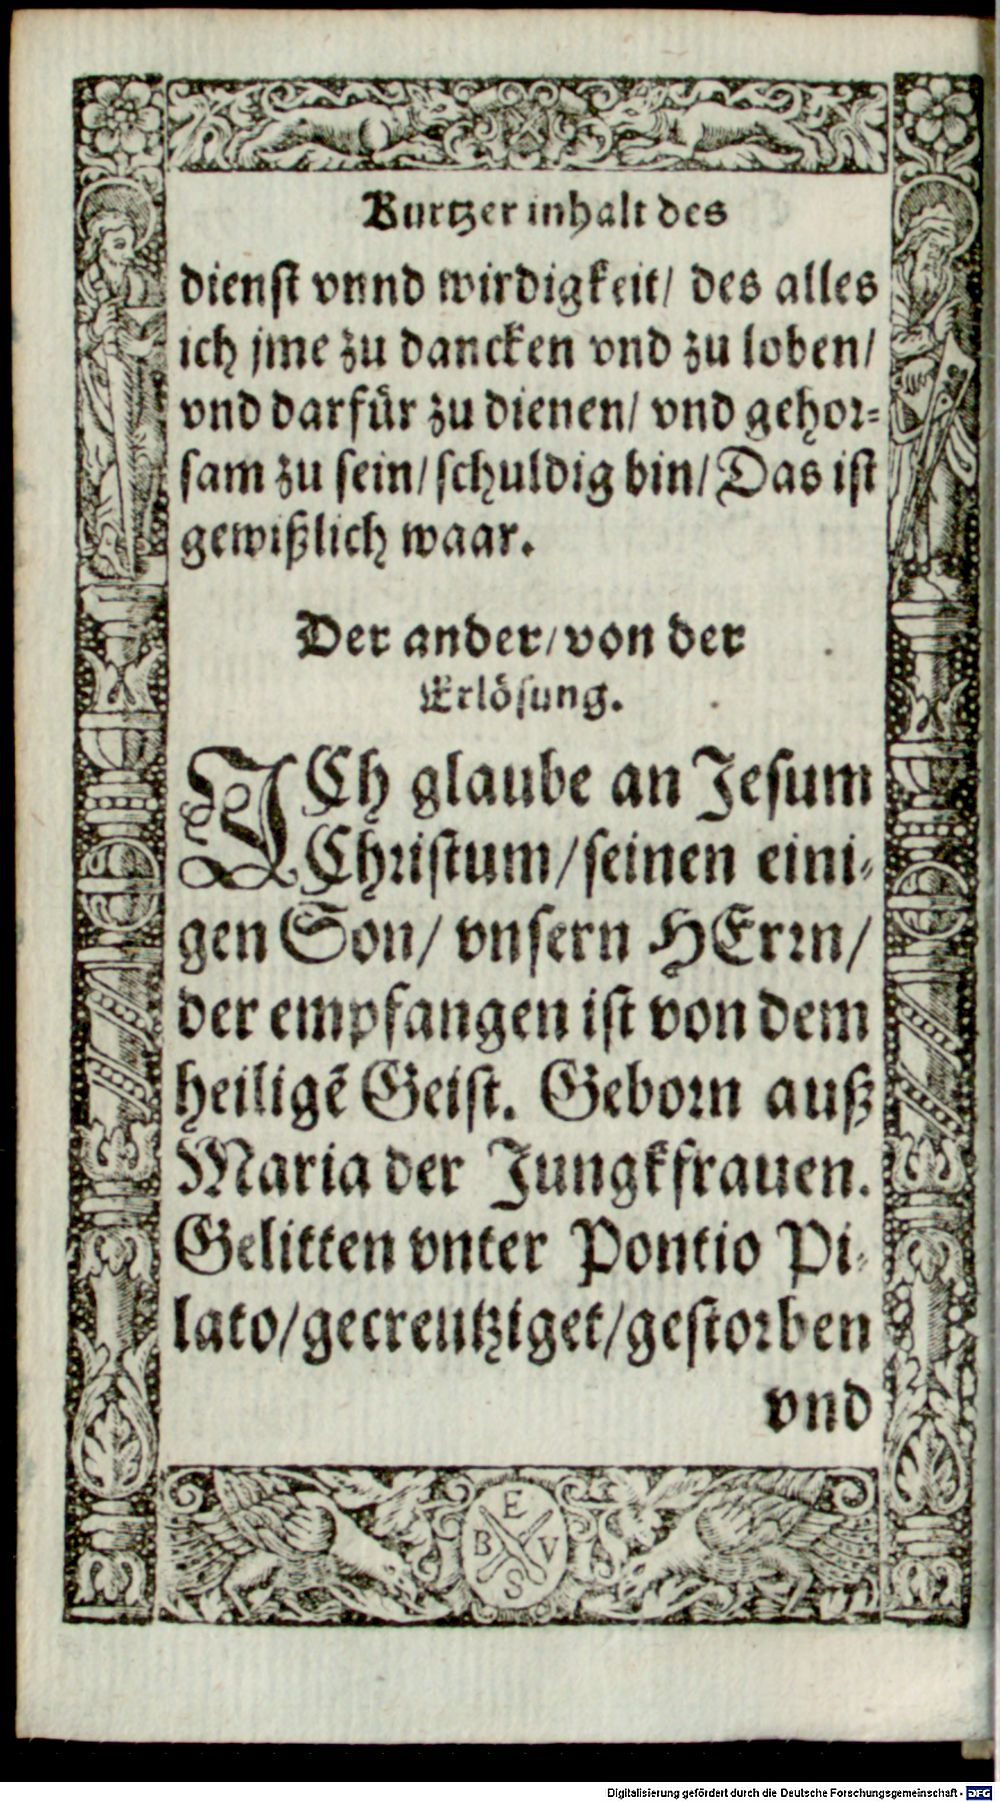 Kurtzer inhalt des
dienst vnnd wirdigkeit/ des alles
ich jme zu dancken vnd zu loben/
vnd darfür zu dienen/ vnd gehor-
sam zu sein/ schuldig bin/ Das ist
gewißlich waar.
Der ander/ von der
Erlösung.
ICh glaube an Jesum
Christum/ seinen eini-
gen Son/ vnsern HErrn/
der empfangen ist von dem
heiligē Geist. Geborn auß
Maria der Jungkfrauen.
Gelitten vnter Pontio Pi-
lato/ gecreutziget/ gestorben
vnd
E
B V
S
Digitalisierung gefördert durch die Deutsche Forschungsgemeinschaft - DFG